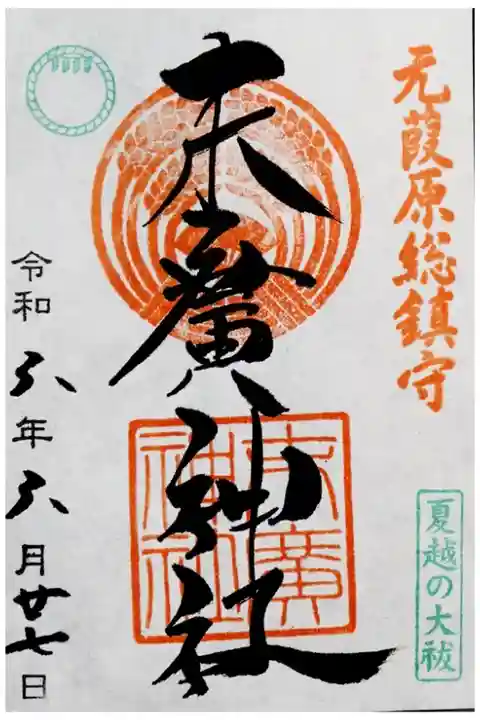 元葭原総鎮守
末廣神社
末廣
神社
夏越の大祓
令和六年六月廿七日